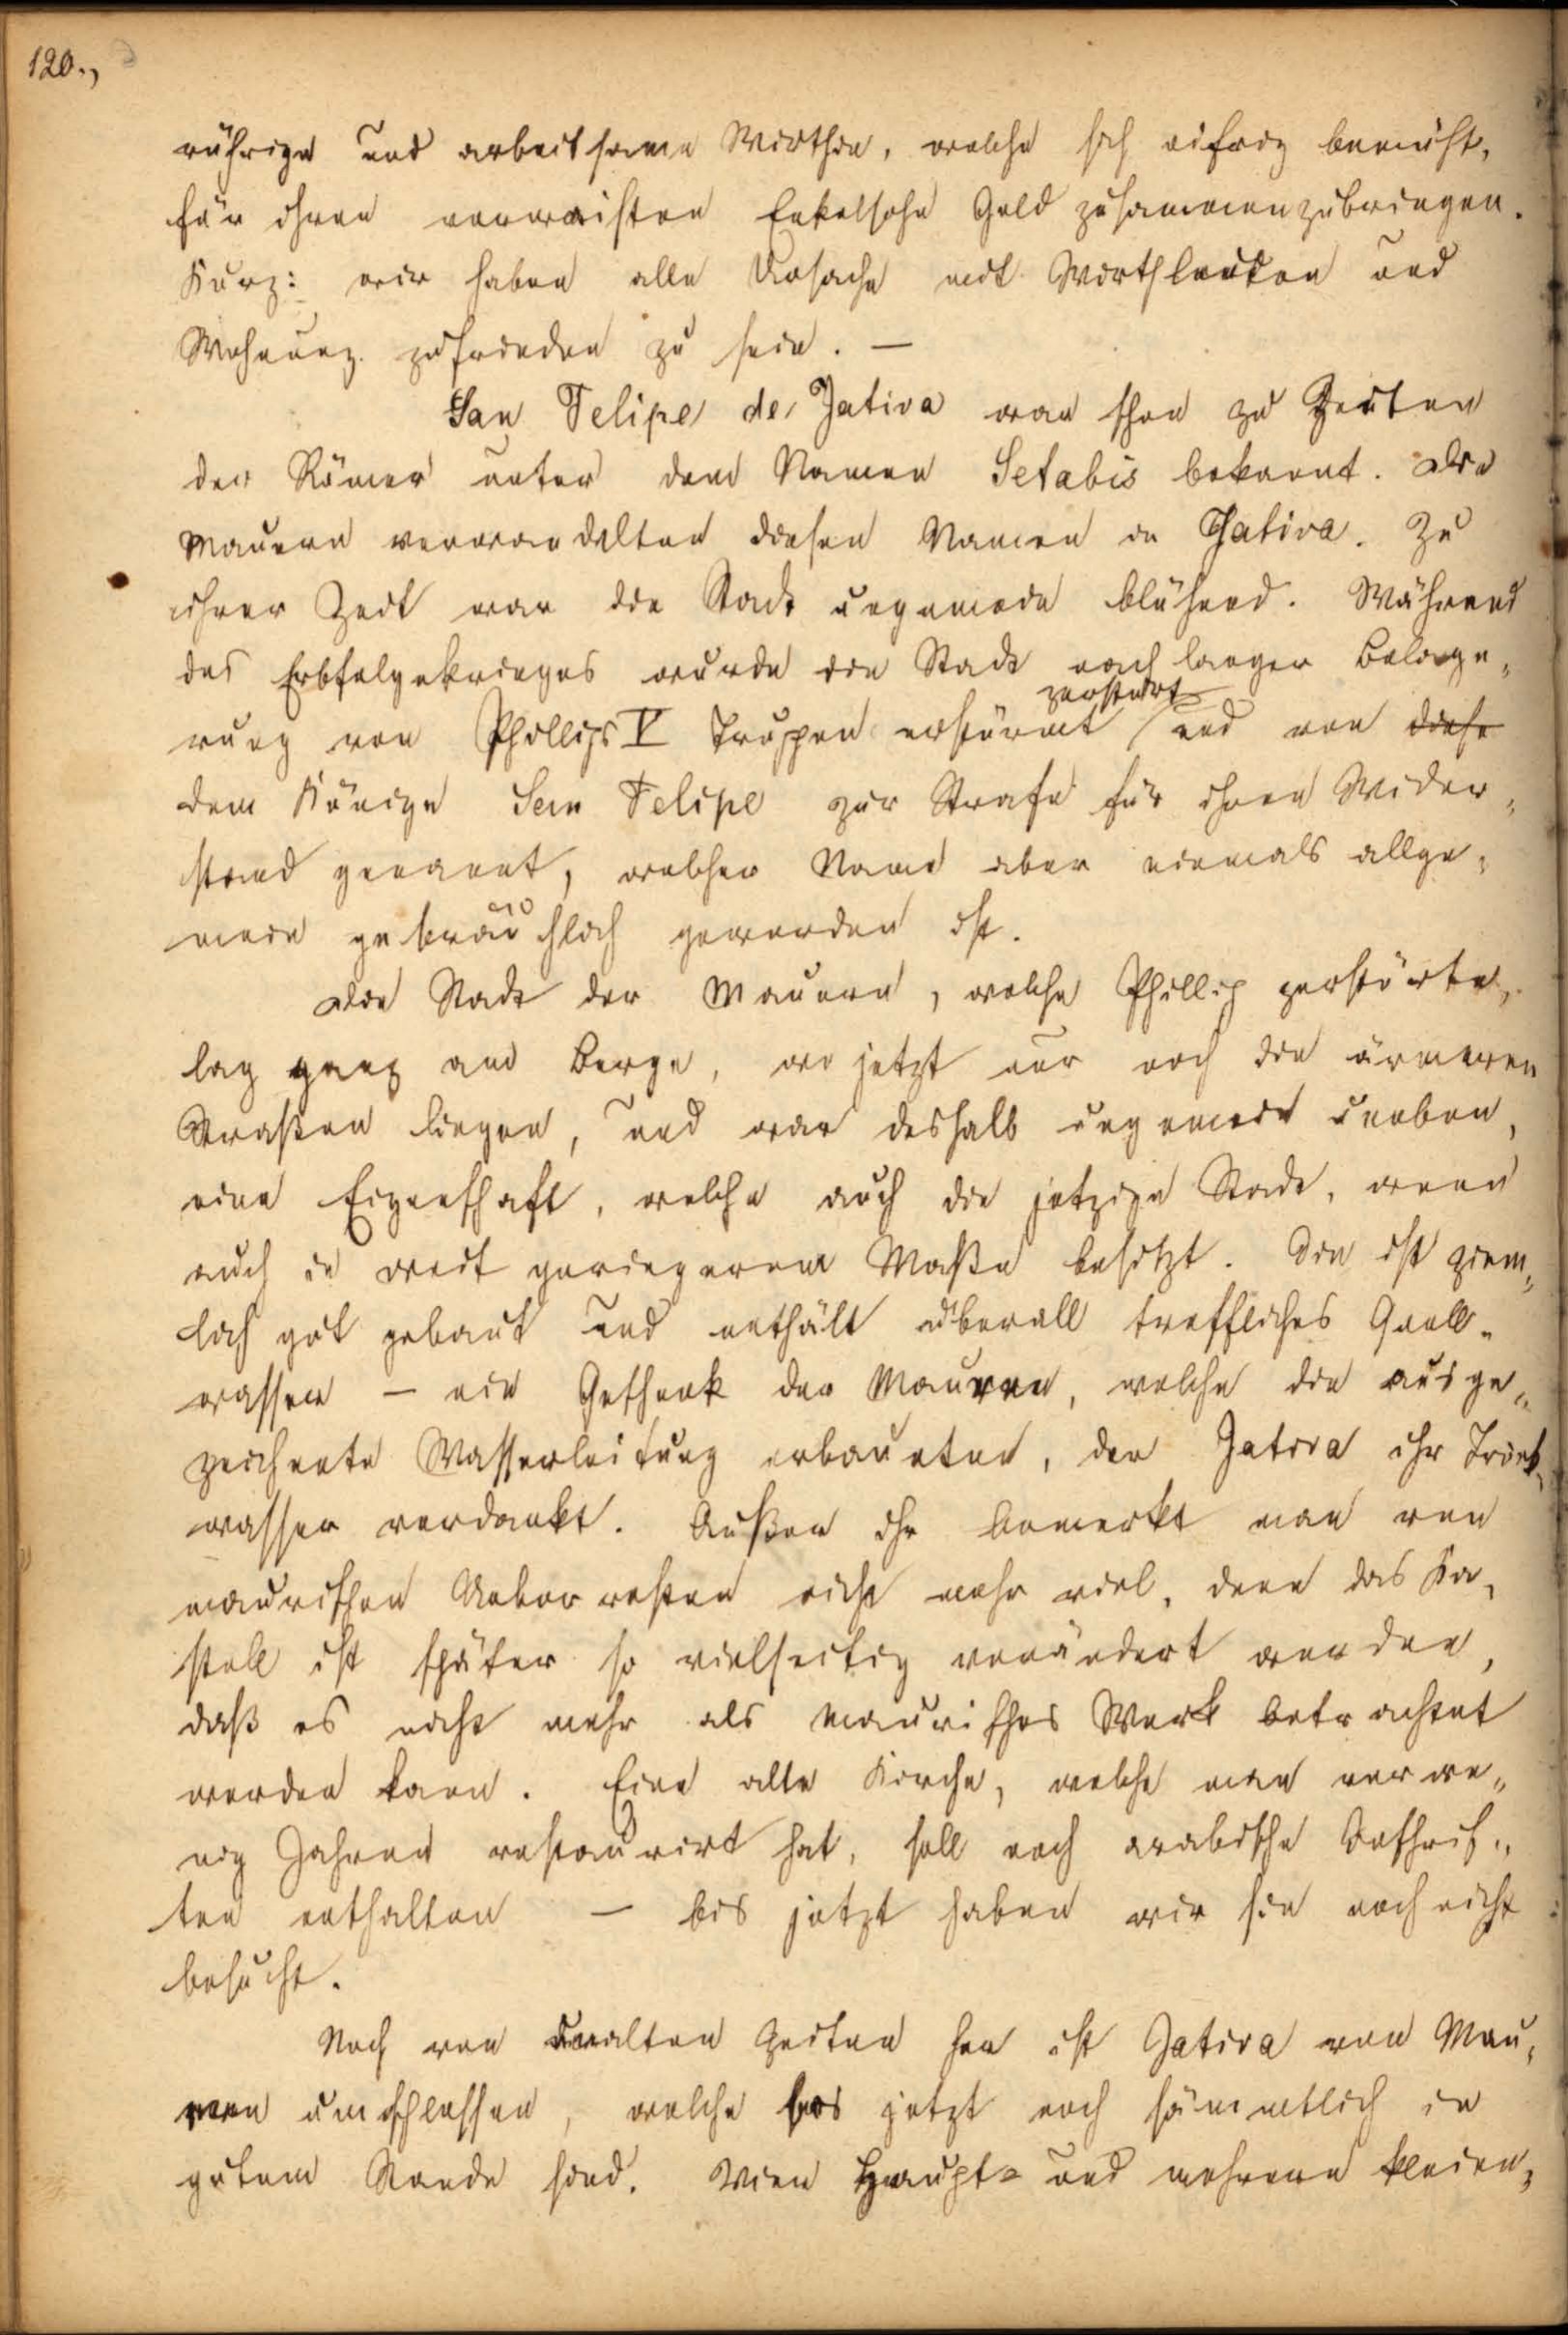 120.,
rührige und arbeitsame Wirthin, welche sich eifrig bemüht,
für ihren verwaisten Enkelsohn Geld zusammenzubringen.
Kurz: wir haben alle Ursache mit Wirthsleuten und
Wohnung zufrieden zu sein. —
San Felipe de Jativa war schon zu Zeiten
der Römer unter dem Namen Setabis bekannt. Die
Mauren verwandelten diesen Namen in Jativa. Zu
ihrer Zeit war die Stadt ungemein blühend. Während
des Erbfolgekrieges wurde die Stadt nach langer Belage„
zerstört
rung von Phillips V Trupen erstürmt und von diese
dem Könige San Felipe zur Strafe für ihren Wider„
stand genannt, welcher Name aber niemals allge„
mein gebräuchlich geworden ist.
Die Stadt der Mauren, welche Phillip zerstörte,
lag ganz am Berge, wo jetzt nur noch die ärmeren
Straßen liegen, und war deshalb ungemein uneben,
eine Eigenschaft, welche auch die jetzige Stadt, wenn
auch in weit geringerem Maße besitzt. Sie ist ziem„
lich gut gebaut und enthält überall treffliches Quell„
wasser — ein Geschenk der Mauren, welche die ausge„
zeichnete Wasserleitung erbaueten, der Jativa ihr Trink„
wasser verdankt. Außer ihr bemerkt man von
maurischen Ueberresten nicht mehr viel, denn das Ka„
stell ist später so vielseitig verändert worden,
daß es nicht mehr als maurisches Werk betrachtet
werden kann. Eine alte Kirche, welche man vor we„
nig Jahren restaurirt hat, soll noch arabische Inschrif„
ten enthalten — bis jetzt haben wir sie noch nicht
besucht.
Noch von uralten Zeiten her ist Jativa von Mau„
ren umschlossen, welche bis jetzt noch sämmtlich in
gutem Stande sind. Vier Haupt= und mehrere kleine„